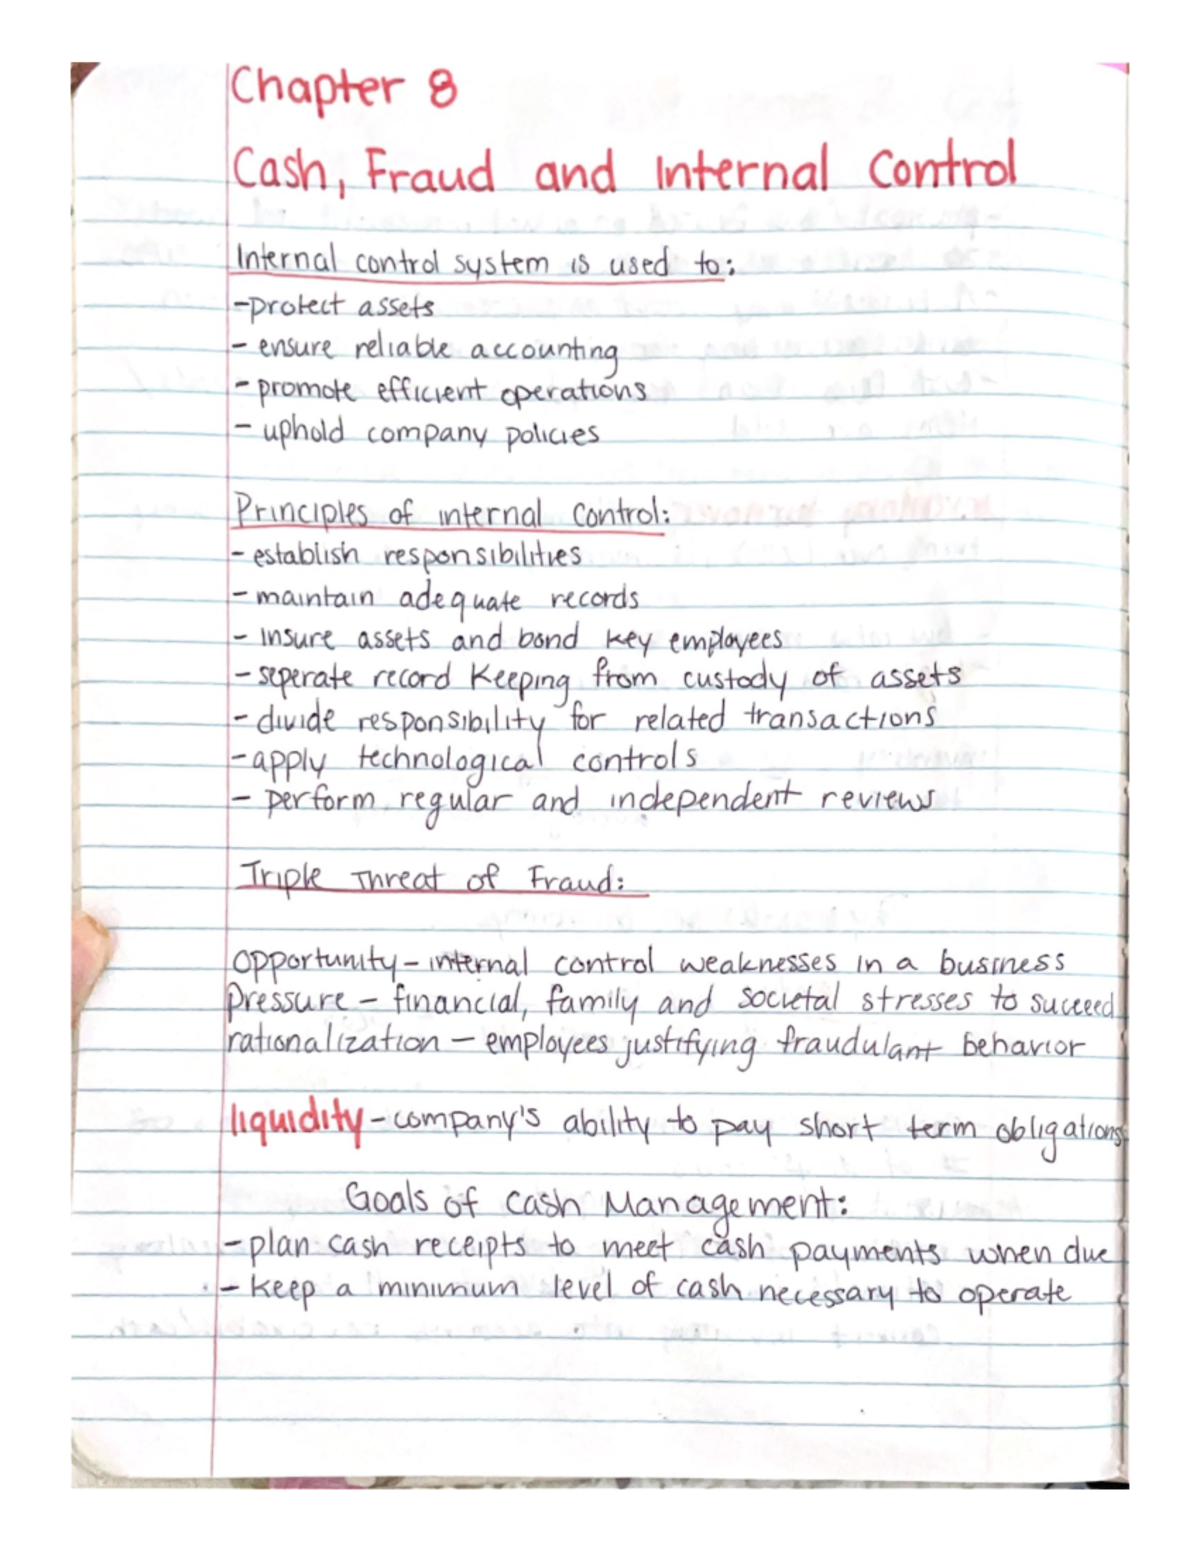 Chapter 8
Cash, Fraud and Internal Control
Internal control system is used to:
-protect assets
- ensure reliable accounting
- promote efficient operations
- uphold company policies
Principles of internal control:
- establish responsibilities
- maintain adequate records
- insure assets and bond key employees
- seperate record keeping from custody of assets
- divide responsibility for related transactions
- apply technological controls
- perform regular and independent reviews
Triple Threat of Fraud:
opportunity - internal control weaknesses in a business
pressure - financial, family and societal stresses to succeed
rationalization - employees justifying fraudulant behavior
liquidity - company's ability to pay short term obligations
Goals of Cash Management:
- plan cash receipts to meet cash payments when due
- keep a minimum level of cash necessary to operate